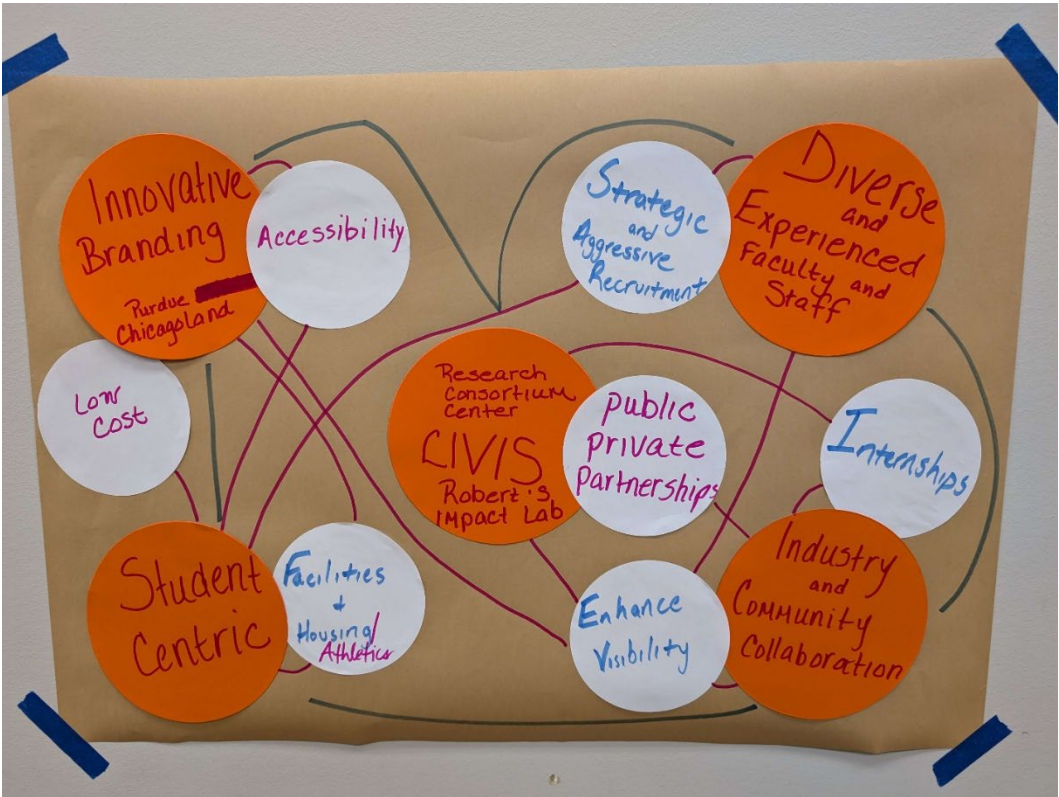 Innovative
Branding
Purdue
Chicagoland
Accessibility
Strategic
and
Aggressive
Recruitment
Diverse
and
Experienced
Faculty and
Staff
Low
Cost
Research
Consortium
Center
CIVIS
Robert's
Impact Lab
Public
Private
Partnerships
Internships
Student
Centric
Facilities
+
Housing/
Athletics
Enhance
Visibility
Industry
and
Community
Collaboration